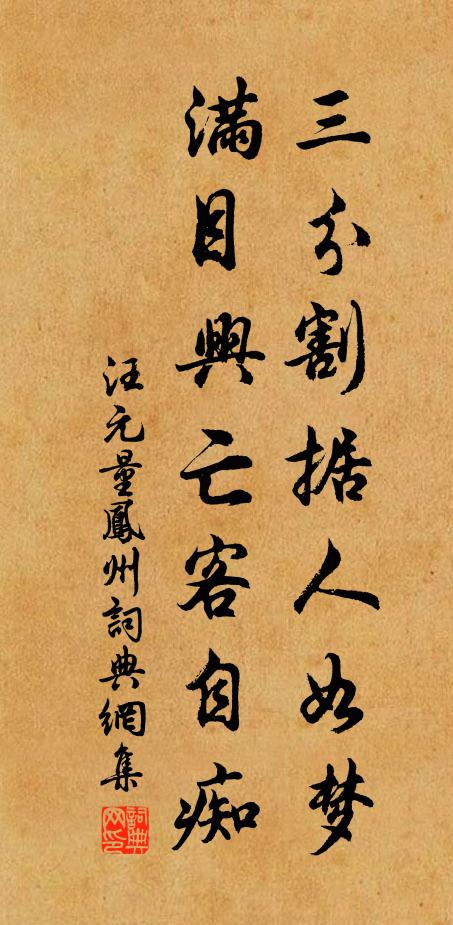 三分割据人如梦
满目興亡客自痴
汪元量鳳州詞典網集
詞典网印